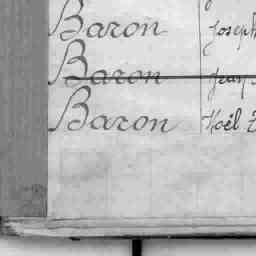 Baron Joseph
Baron Jean
Baron Noël